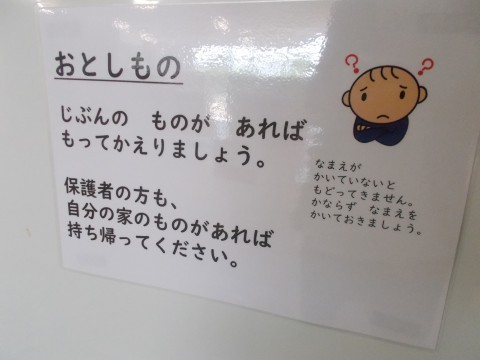 おとしもの
じぶんの ものが あれば
もってかえりましょう。
保護者の方も、
自分の家のものがあれば
持ち帰ってください。
? ?
なまえが
かいていないと
もどってきません。
かならず なまえを
かいておきましょう。